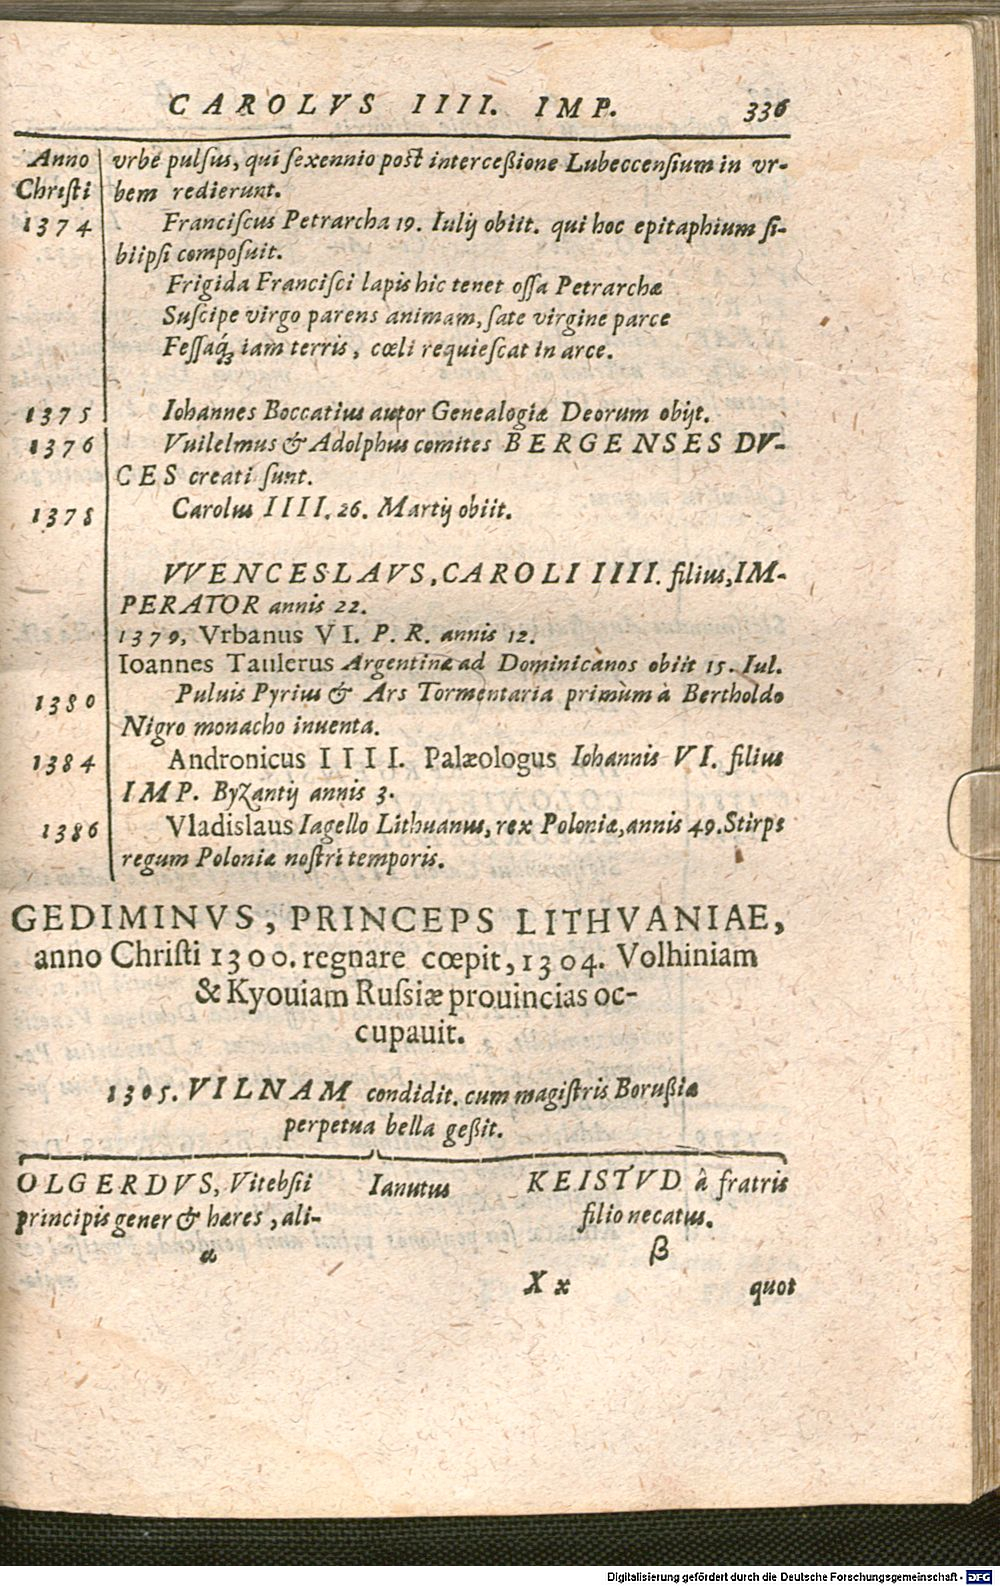 CAROLVS IIII. IMP. 336
Anno vrbe pulſus, qui ſexennio poſt interceßione Lubeccenſium in vr-
Chrıſti bem redierunt.
1374 Franciſcus Petrarcha 19. Iulij obiit. qui hoc epitaphium ſi-
biipſi compoſuit.
Frigida Franciſci lapis hic tenet oſſa Petrarchæ
Suſcipe virgo parens animam, ſate virgine parce
Feſſaq́ꝫ iam terris, cœli requieſcat in arce.
1375 Iohannes Boccatius autor Genealogiæ Deorum obijt.
1376 Vuilelmus & Adolphus comites BERGENSES DV-
CES creati ſunt.
1378 Carolus IIII. 26. Martij obiit.
VVENCESLAVS, CAROLI IIII. filius, IM-
PERATOR annis 22.
1379, Vrbanus VI. P. R. annis 12.
Ioannes Taulerus Argentinæ ad Dominicanos obiit 15. Iul.
1380 Puluis Pyrius & Ars Tormentaria primùm à Bertholdo
Nigro monacho inuenta.
1384 Andronicus IIII. Palæologus Iohannis VI. filius
IMP. Byzantij annis 3.
1386 Vladislaus Iagello Lithuanus, rex Poloniæ, annis 49. Stirps
regum Poloniæ noſtri temporis.
GEDIMINVS, PRINCEPS LITHVANIAE,
anno Chriſti 1300. regnare cœpit, 1304. Volhiniam
& Kyouiam Ruſsiæ prouincias oc-
cupauit.
1305. VILNAM condidit. cum magiſtris Borußiæ
perpetua bella geßit.
OLGERDVS, Vitebſii Ianutus KEISTVD â fratris
principis gener & hæres, ali- filio necatus.
α β
X x quot
Digitalisierung gefördert durch die Deutsche Forschungsgemeinschaft - DFG